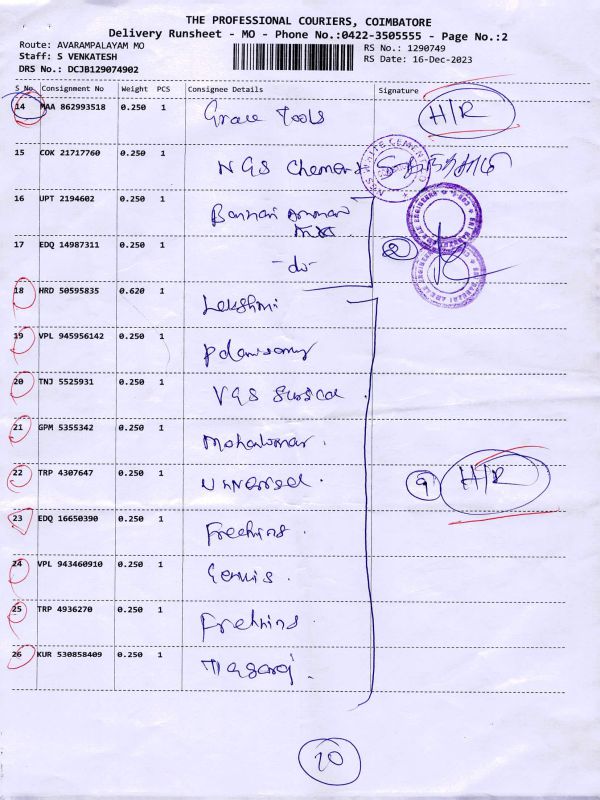 THE PROFESSIONAL COURIERS, COIMBATORE
Delivery Runsheet - MO - Phone No.:0422-3505555 - Page No.:2
Route: AVARAMPALAYAM MO
RS No.: 1290749
Staff: S VENKATESH
RS Date: 16-Dec-2023
DRS No.: DCJB129074902
S No Consignment No Weight PCS Consignee Details Signature
14 MAA 862993518 0.250 1 Grace Tools H/R
15 COK 21717760 0.250 1 NGS
16 UPT 2194602 0.250 1 Bannari Amman
17 EDQ 14987311 0.250 1 -do- 2
18 HRD 50595835 0.620 1 Lakshmi
19 VPL 945956142 0.250 1 Palanisamy
20 TNJ 5525931 0.250 1 VGS Surgical
21 GPM 5355342 0.250 1 Mohankumar.
22 TRP 4307647 0.250 1 Universal. 9 H/R
23 EDQ 16650390 0.250 1
24 VPL 943460910 0.250 1 Genius.
25 TRP 4936270 0.250 1
26 KUR 530858409 0.250 1 Nagaraj.
10